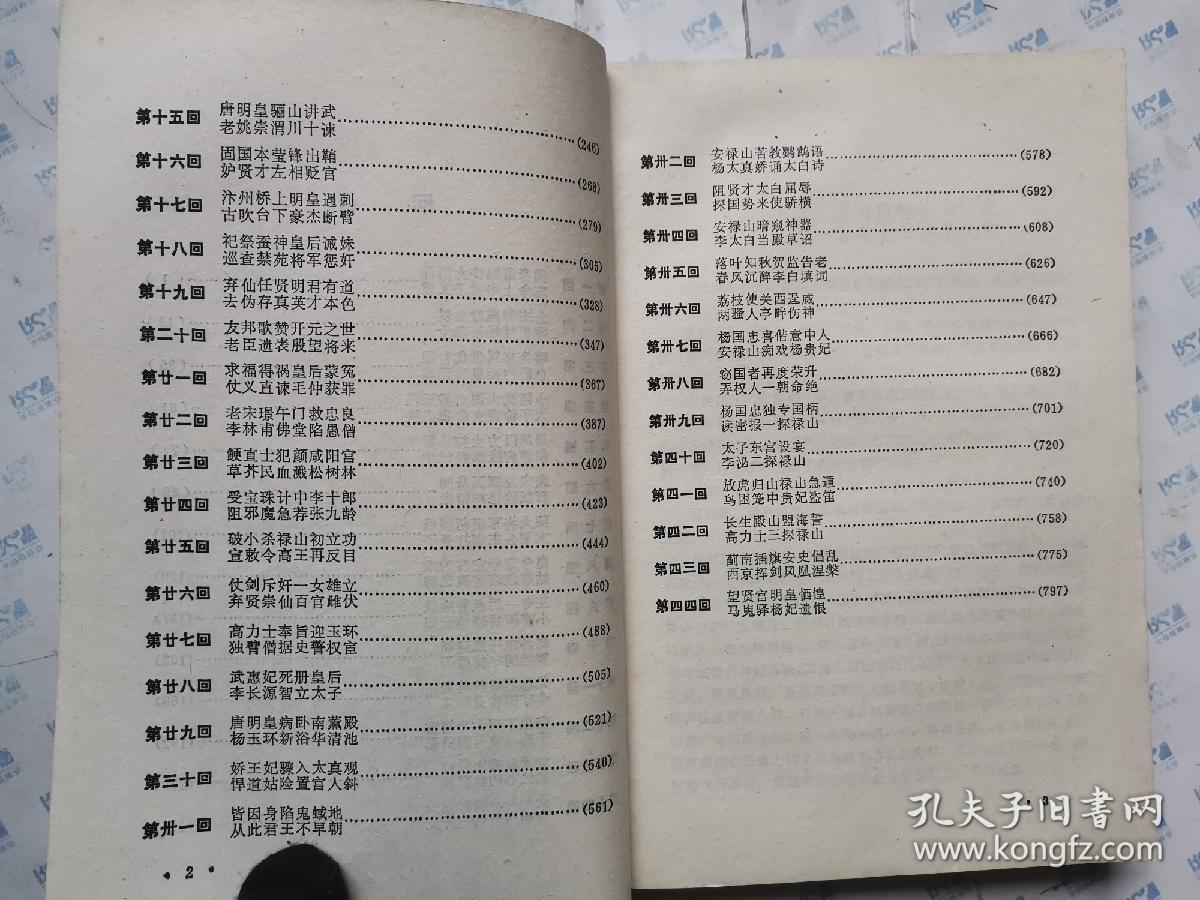 第十五回 唐明皇骊山讲武
老姚崇渭川十谏 (246)
第十六回 固国本莹锋出鞘
妒贤才左相贬官 (268)
第十七回 汴州桥上明皇遇刺
古吹台下豪杰断臂 (279)
第十八回 祀祭蚕神皇后诚妹
巡查禁苑将军惩奸 (305)
第十九回 弃仙任贤明君有道
去伪存真英才本色 (328)
第二十回 友邦歌赞开元之世
老臣遗表殷望将来 (347)
第廿一回 求福得祸皇后蒙冤
仗义直谏毛仲获罪 (367)
第廿二回 老宋璟午门救忠良
李林甫佛堂陷愚僧 (387)
第廿三回 鲠直士犯颜咸阳宫
草芥民血溅松树林 (402)
第廿四回 受宝珠计中李十郎
阻邪魔急荐张九龄 (423)
第廿五回 破小杀禄山初立功
宣敕令高王再反目 (444)
第廿六回 仗剑斥奸一女雄立
弃贤崇仙百官雌伏 (460)
第廿七回 高力士奉旨迎玉环
独臂僧据史警权宦 (488)
第廿八回 武惠妃死册皇后
李长源智立太子 (505)
第廿九回 唐明皇病卧南薰殿
杨玉环新浴华清池 (521)
第三十回 娇王妃骤入太真观
悍道姑险置宫人斜 (540)
第卅一回 皆因身陷鬼蜮地
从此君王不早朝 (561)
• 2 •
第卅二回 安禄山苦教鹦鹉语
杨太真娇诵太白诗 (578)
第卅三回 阻贤才太白屈辱
探国势来使骄横 (592)
第卅四回 安禄山暗窥神器
李太白当殿草诏 (608)
第卅五回 落叶知秋贺监告老
春风沉醉李白填词 (626)
第卅六回 荔枝使关西逞威
两骚人亭畔伤神 (647)
第卅七回 杨国忠喜偕意中人
安禄山痴戏杨贵妃 (666)
第卅八回 窃国者再度荣升
弄权人一朝命绝 (682)
第卅九回 杨国忠独专国柄
读密报一探禄山 (701)
第四十回 太子东宫设宴
李泌二探禄山 (720)
第四一回 放虎归山禄山急遁
鸟困笼中贵妃盗笛 (740)
第四二回 长生殿山盟海誓
高力士三探禄山 (758)
第四三回 蓟南插旗安史倡乱
西京挥剑凤凰涅槃 (775)
第四四回 望贤宫明皇恓惶
马嵬驿杨妃遗恨 (797)
• 3
孔夫子旧书网
www.kongfz.com